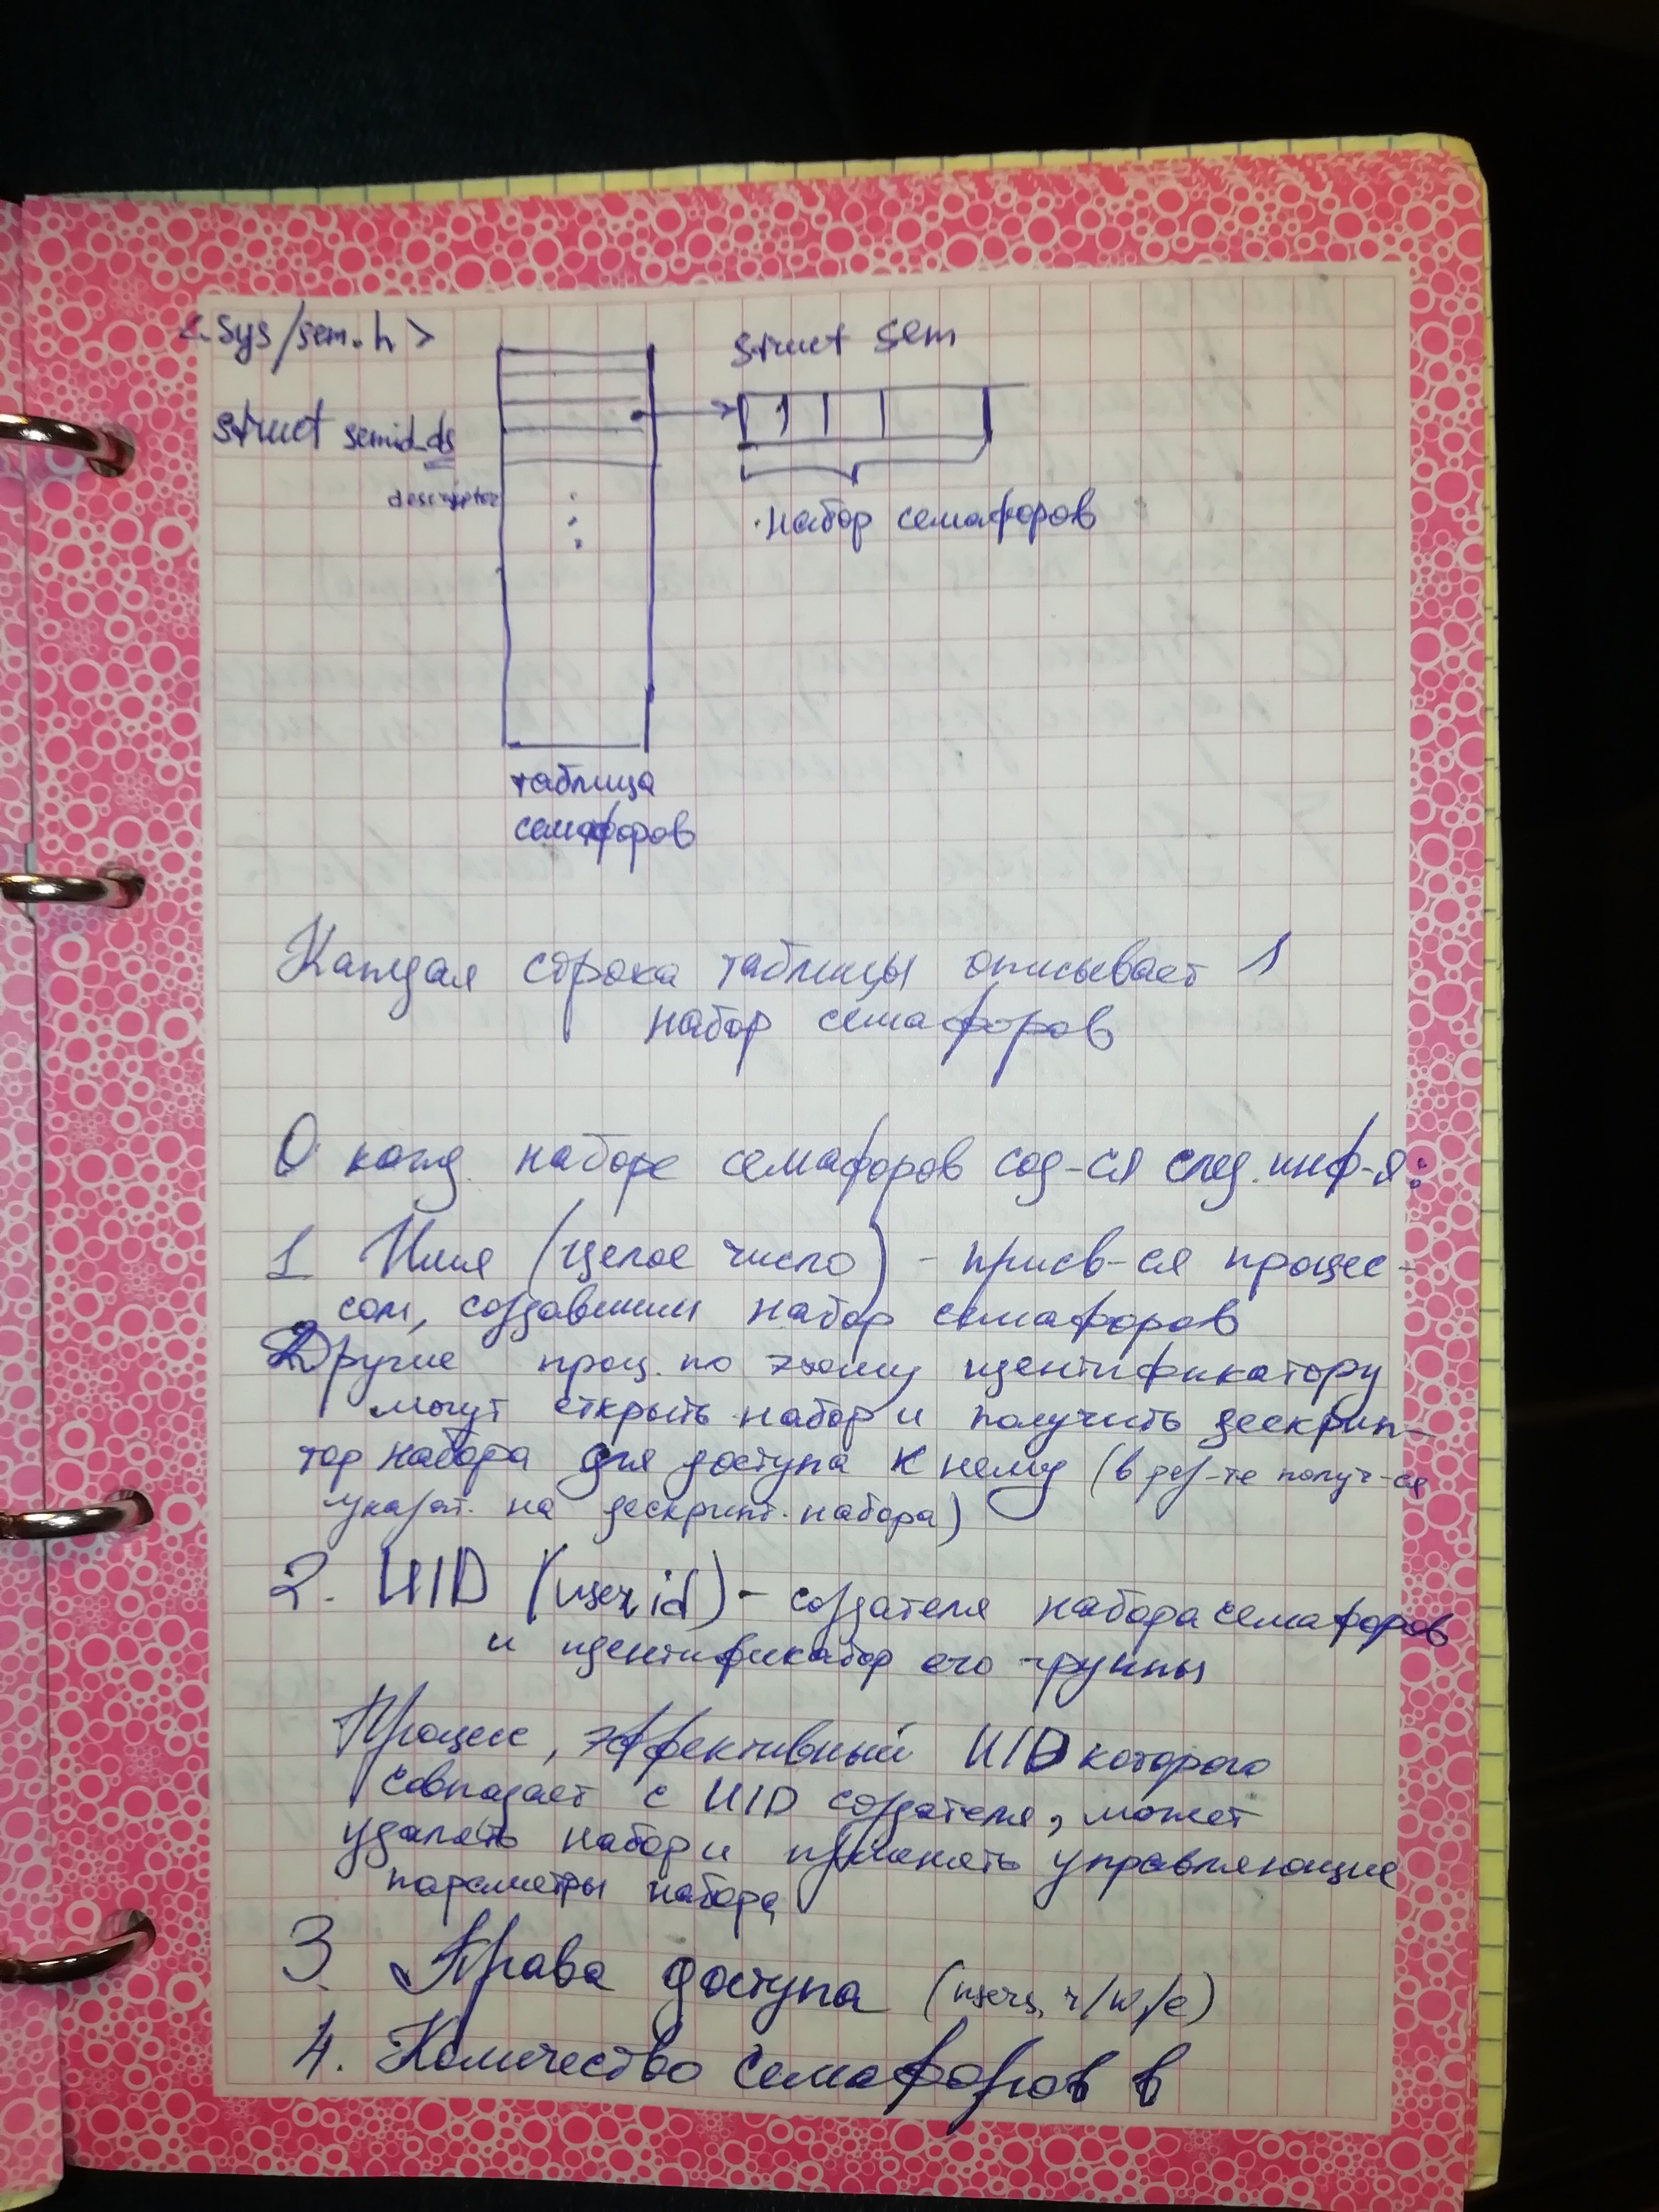 <sys/sem.h>
struct sem
struct semid_ds
descriptor
набор семафоров
таблица
семафоров
Каждая строка таблицы описывает 1
набор семафоров
О кажд. наборе семафоров сод-ся след. инф-я:
1 Имя (целое число) - присв-ся процес-
сом, создавшим набор семафоров
Другие проц. по этому идентификатору
могут открыть набор и получить дескрип-
тор набора для доступа к нему (в рез-те получ-ся
указат. на дескрипт. набора)
2. UID (user id) - создателя набора семафоров
и идентификатор его группы
Процесс, эффективный UID которого
совпадает с UID создателя, может
удалять набор и изменять управляющие
параметры набора
3. Права доступа (r/w/e)
4. Количество семафоров в